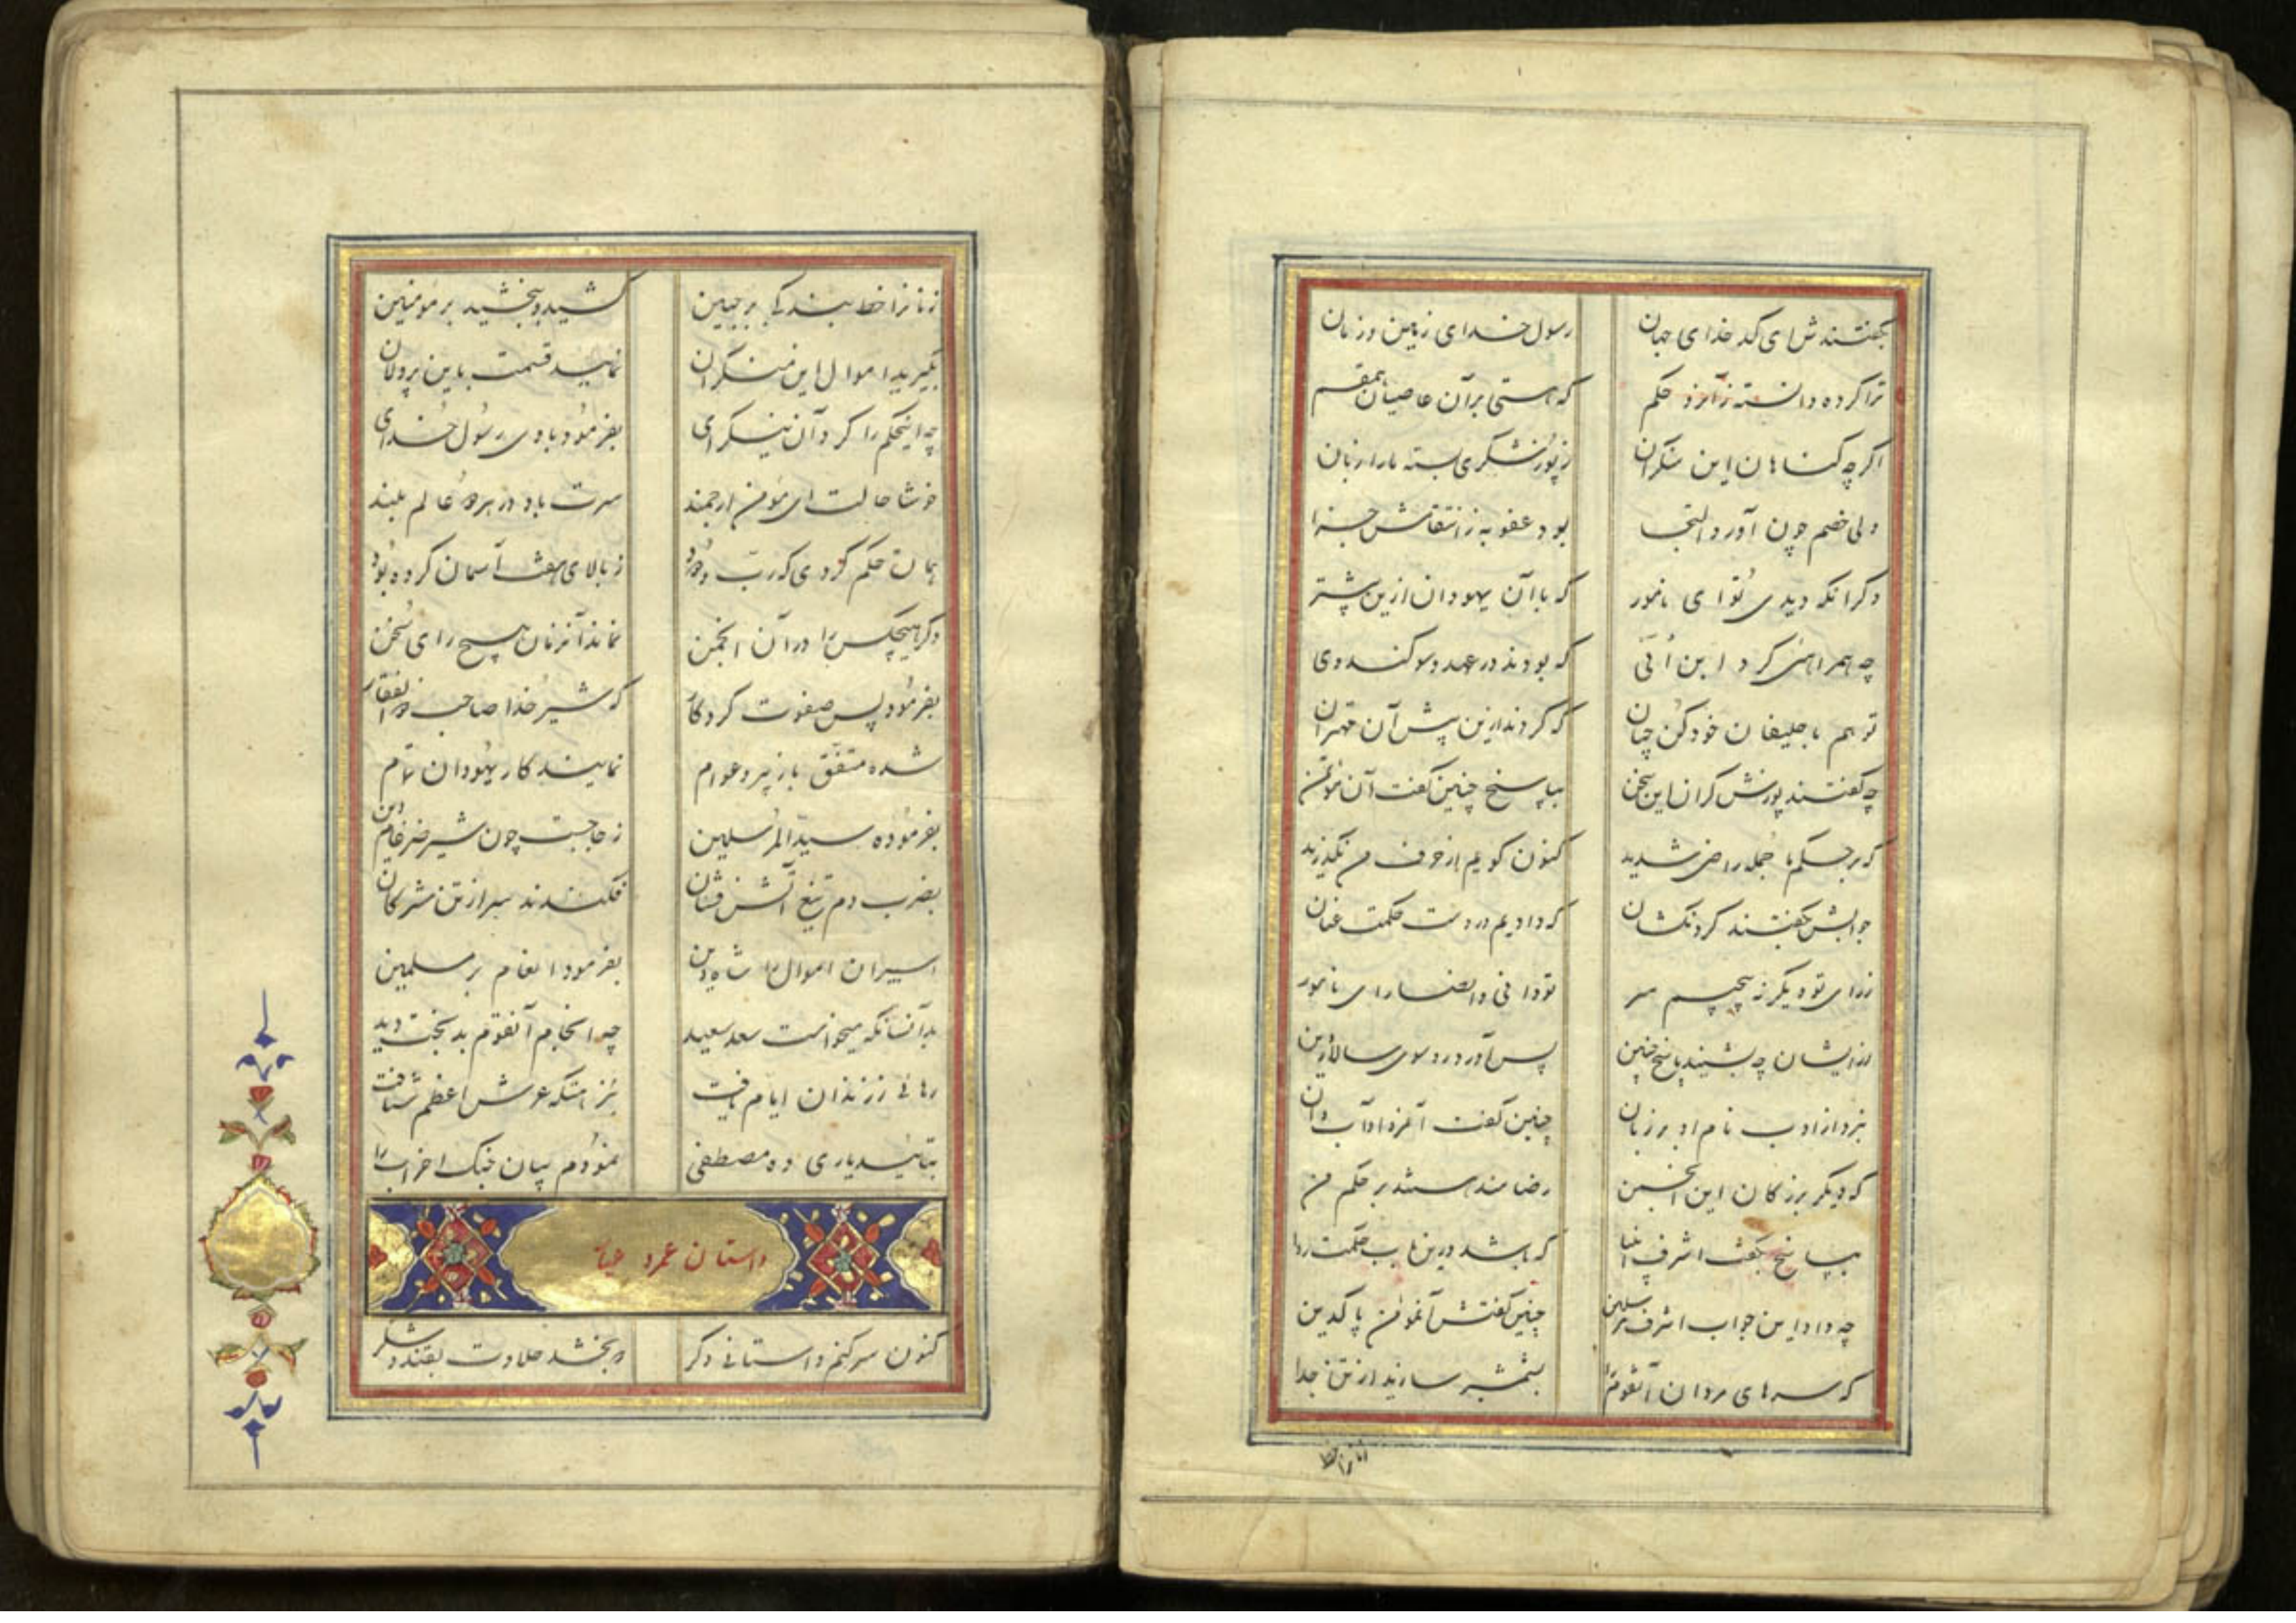 بگفتندش ای کدخدای جهان رسول خدای زمین و زمان
ترا کرده دانسته زآنرو حکم که هستی برآن عاصیان هم قسم
اگرچه گناهان این منکران ز پوزشگری بسته مارا زبان
ولی خصم چون آورد التجا بود عفو به زانتقامش جزا
دگر آنکه دیدی تو ای نامور که با آن یهودان ازین پیشتر
چه همراهئی کرد ابن اُبَی که بودند در عهد و سوگند وی
تو هم با حلیفان خود کن چنان که کردند ازین پیش آن مهتران
چه گفتند پوزش گران این سخن بپاسخ چنین گفت آن مؤتمن
که بر حکم ما جمله راضی شدید کنون گویم از حرف من نگذرید
جوابش بگفتند گردنکشان که دادیم در دست حکمت عنان
ز رای تو دیگر نه پیچیم سر تو دانی و انصاف ای نامور
از ایشان چه بشنید پاسخ چنین پس آورد رو سوی سالار دین
نبرد از ادب نام او بر زبان چنین گفت آنمرد آداب دان
که دیگر بزرگان این انجمن رضامند هستند بر حکم من
بپاسخ بگفت اشرف انبیا که باشد درین باب حکمت روا
چه داد این جواب اشرف مرسلین چنین گفتش آنمؤمن پاکدین
که سرهای مردان آنقوم را بشمشیر سازید از تن جدا
زنانرا خط
زنانرا خط بندگی بر جبین کشید و ببخشید بر مؤمنین
بگیرید اموال این منکران نمائید قسمت باین پردلان
چه اینحکم را کرد آن نیکرای بفرمود با وی رسول خدای
خوشا حالت ای مؤمن ارجمند سرت باد در هر دو عالم بلند
همان حکم کردی که رب ودود ز بالای هفت آسمان کرده بود
دگر هیچکس را در آن انجمن نماند آنزمان هیچ رای سخن
بفرمود پس صفوت کردگار که شیر خدا صاحب ذوالفقار
شده متفق با زبیر و عوام نمایند کار یهودان تمام
بفرموده سید المرسلین ز جا جست چون شیر ضرغام دین
بضرب دم تیغ آتش فشان فکندند سر از تن مشرکان
اسیران اموال را شاه دین بفرمود انعام بر مسلمین
بدآنسانکه میخواست سعد سعید چه انجام آنقوم بدبخت دید
رهائی ز زندان ایام یافت بنزهتگه عرش اعظم شتافت
بتائید یاری ده مصطفی نمودم بیان جنگ احزاب را
داستان عمرد
کنون سر کنم داستانی دگر که بخشد حلاوت بقند و شکر